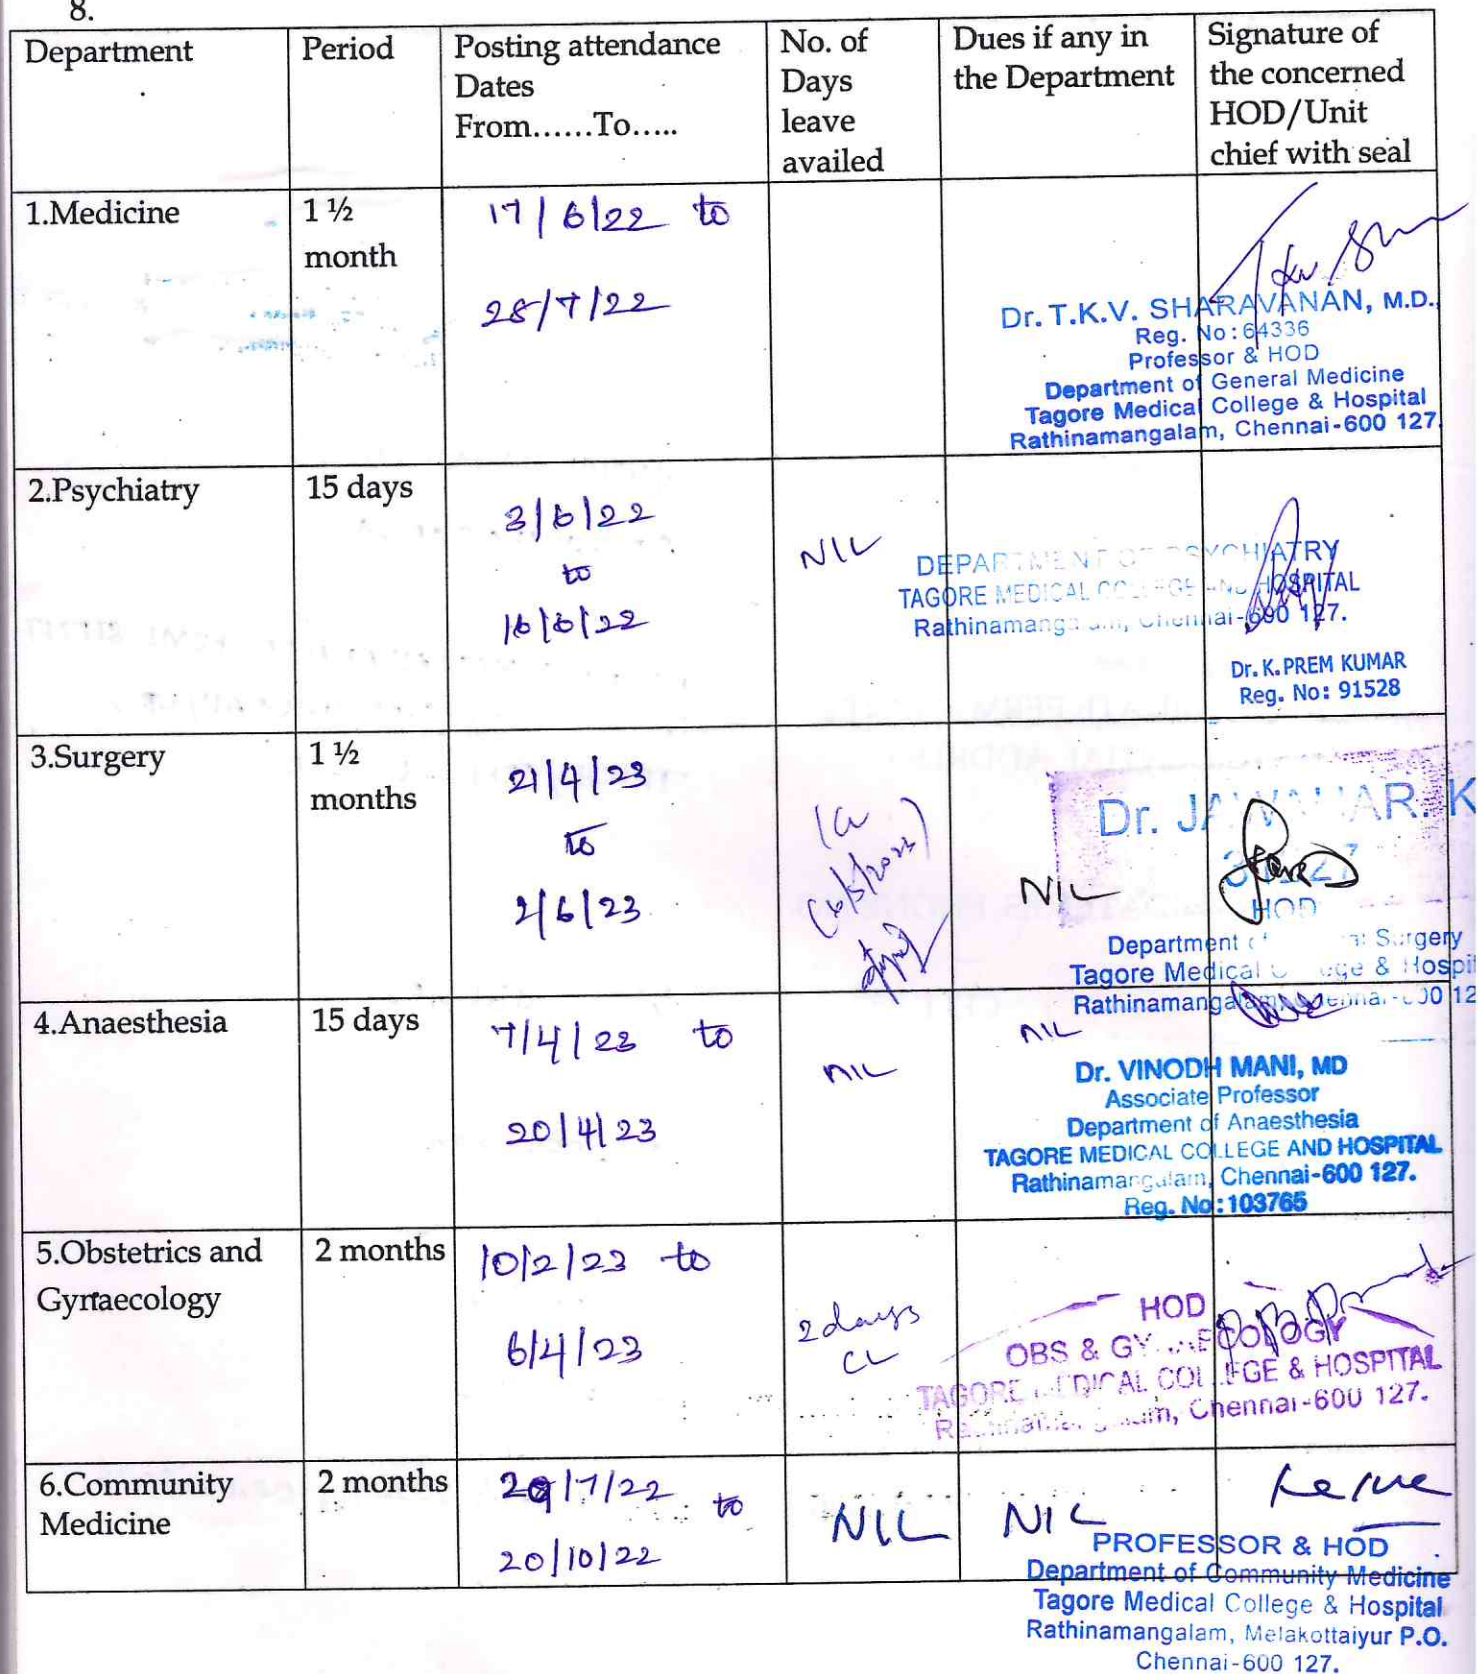 8.
Department
Period
Posting attendance
Dates
From......To.....
No. of
Days
leave
availed
Dues if any in
the Department
Signature of
the concerned
HOD/Unit
chief with seal
1.Medicine
1 ½
month
17/6/22 to
28/7/22
Dr. T.K.V. SHARAVANAN, M.D.,
Reg. No : 64336
Professor & HOD
Department of General Medicine
Tagore Medical College & Hospital
Rathinamangalam, Chennai-600 127.
2.Psychiatry
15 days
3/6/22
to
16/6/22
NIL
DEPARTMENT OF PSYCHIATRY
TAGORE MEDICAL COLLEGE AND HOSPITAL
Rathinamangalam, Chennai-600 127.
Dr. K. PREM KUMAR
Reg. No: 91528
3.Surgery
1 ½
months
21/4/23
to
2/6/23
NIL
Dr. JAWAHAR. K
HOD
Department Surgery
Tagore Medical College & Hospit
Rathinamangalam, Chennai-600 12
4.Anaesthesia
15 days
7/4/23 to
20/4/23
NIL
NIL
Dr. VINODH MANI, MD
Associate Professor
Department of Anaesthesia
TAGORE MEDICAL COLLEGE AND HOSPITAL
Rathinamangalam, Chennai-600 127.
Reg. No:103765
5.Obstetrics and
Gynaecology
2 months
10/2/23 to
6/4/23
2 days
CL
HOD
OBS & GYNAECOLOGY
TAGORE MEDICAL COLLEGE & HOSPITAL
Rathinamangalam, Chennai-600 127.
6.Community
Medicine
2 months
29/7/22 to
20/10/22
NIL
NIL
PROFESSOR & HOD
Department of Community Medicine
Tagore Medical College & Hospital
Rathinamangalam, Melakottaiyur P.O.
Chennai-600 127.